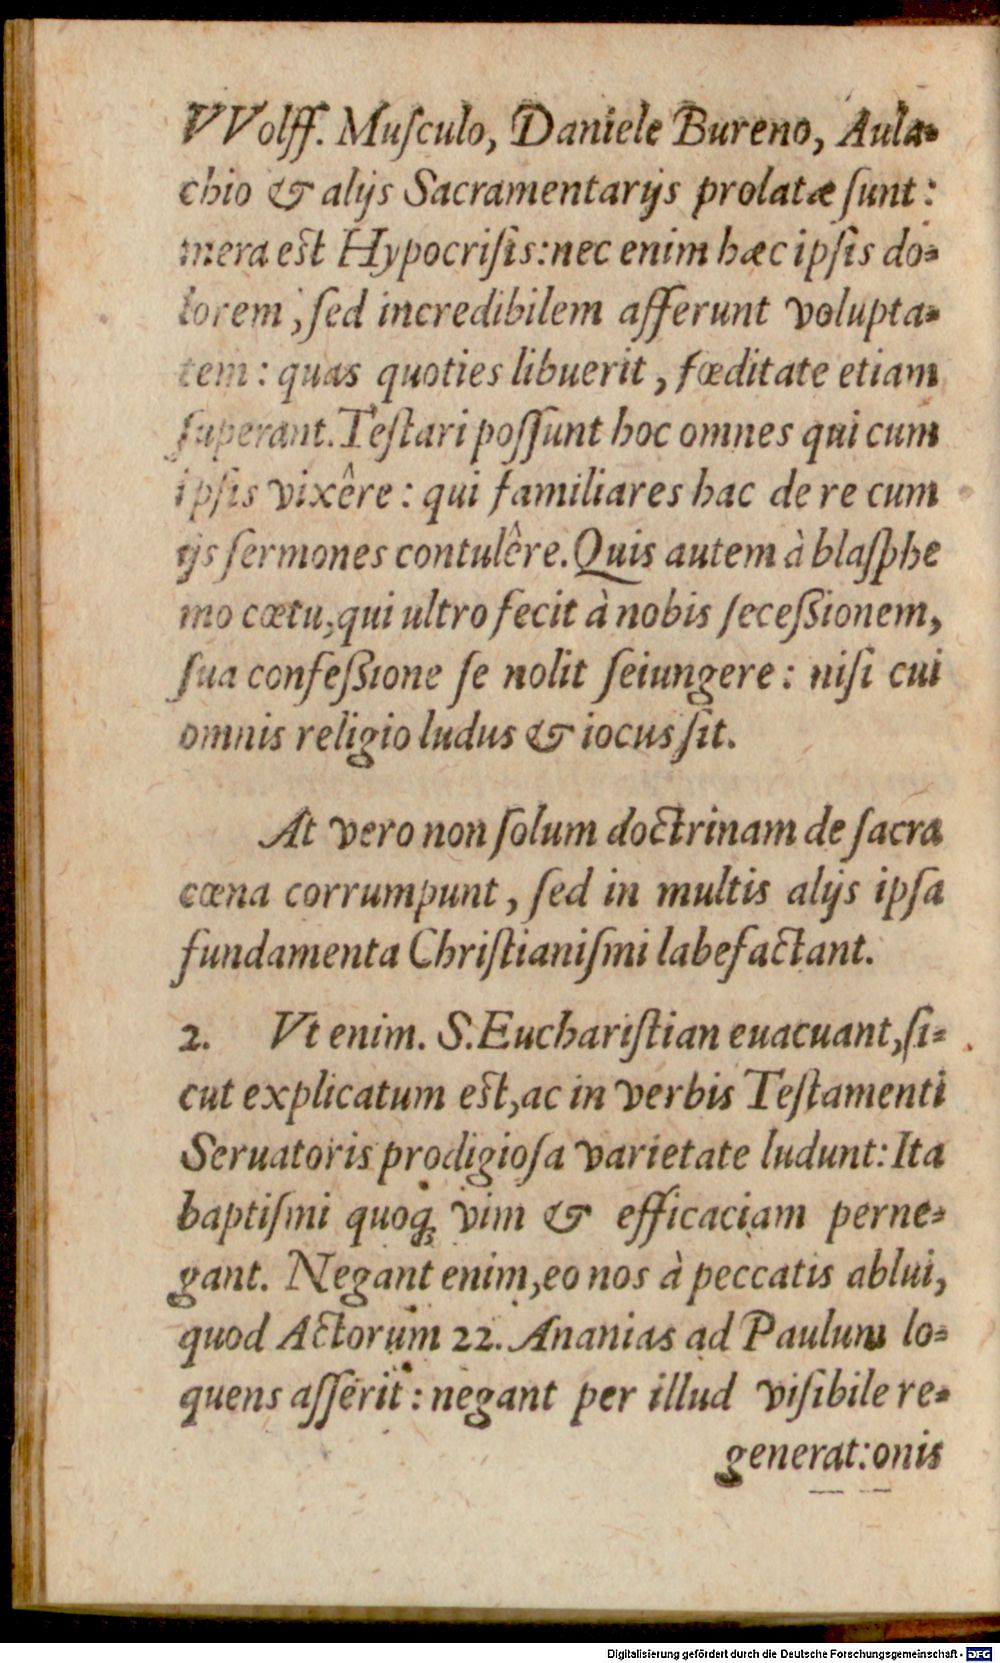 VVolff. Muſculo, Daniele Bureno, Aula-
chio & alijs Sacramentarijs prolatæ ſunt:
mera est Hypocriſis: nec enim hæc ipſis do-
lorem, ſed incredibilem afferunt volupta-
tem: quas quoties libuerit, fœditate etiam
ſuperant. Teſtari poſſunt hoc omnes qui cum
ipſis vixêre: qui familiares hac de re cum
ijs ſermones contulêre. Quis autem à blaſphe
mo cœtu, qui ultro fecit à nobis ſeceßionem,
ſua confeßione ſe nolit ſeiungere: niſi cui
omnis religio ludus & iocus ſit.
At vero non ſolum doctrinam de ſacra
cœna corrumpunt, ſed in multis alijs ipſa
fundamenta Chriſtianiſmi labefactant.
2. Vt enim. S. Euchariſtian euacuant, ſi-
cut explicatum est, ac in verbis Teſtamenti
Seruatoris prodigioſa varietate ludunt: Ita
baptiſmi quoq; vim & efficaciam perne-
gant. Negant enim, eo nos à peccatis ablui,
quod Actorum 22. Ananias ad Paulum lo-
quens aſſerit: negant per illud viſibile re-
generat:onis
Digitalisierung gefördert durch die Deutsche Forschungsgemeinschaft - DFG